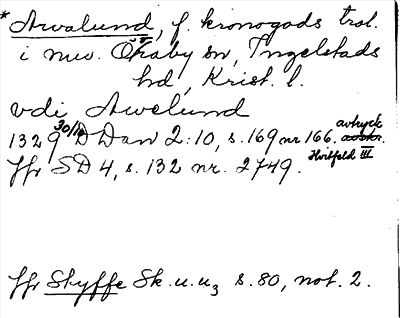 * Arvalund, f. kronogods trol.
i nuv. Öraby sn, Ingelstads
hd, Krist. l.
vdi Awelund
1329 30/10 DDan 2:10, s. 169 nr 166. avtryck
Hvitfeld III
Jfr SD 4, s. 132 nr. 2749.
Jfr Styffe Sk.u.u3 s. 80, not. 2.